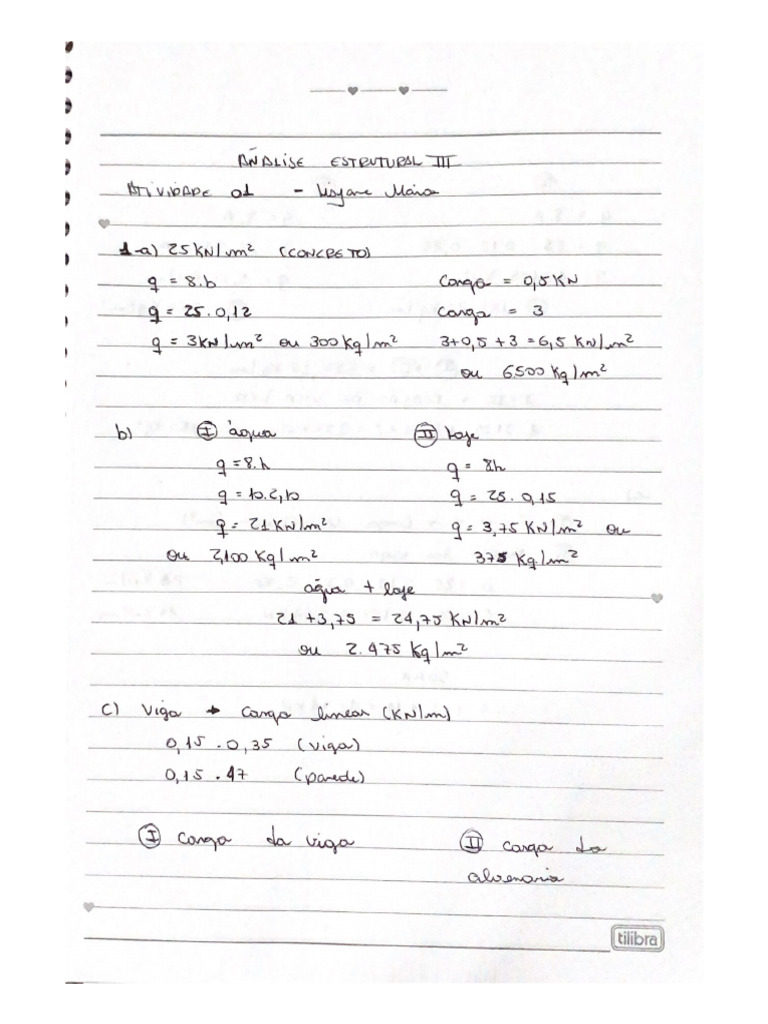 ANÃLISE ESTRUTURAL III
ATIVIDADE 01 - Lisyane Maiara
1-a) 25 KN/m² (CONCRETO)
q = 8.b
q = 25.0,12
q = 3KN/m² ou 300 Kg/m²
Carga = 0,5 KN
Carga = 3
3+0,5+3 = 6,5 KN/m²
ou 6500 Kg/m²
b)
I água
q = 8.h
q = 10.2,10
q = 21 KN/m²
ou 2,100 Kg/m²
II Laje
q = 8h
q = 25.0,15
q = 3,75 KN/m² ou
375 Kg/m²
água + laje
21 + 3,75 = 24,75 KN/m²
ou 2.475 Kg/m²
c) Viga → carga linear (KN/m)
0,15 . 0,35 (viga)
0,15 . 47 (parede)
I carga da viga
II carga da
alvenaria
tilibra